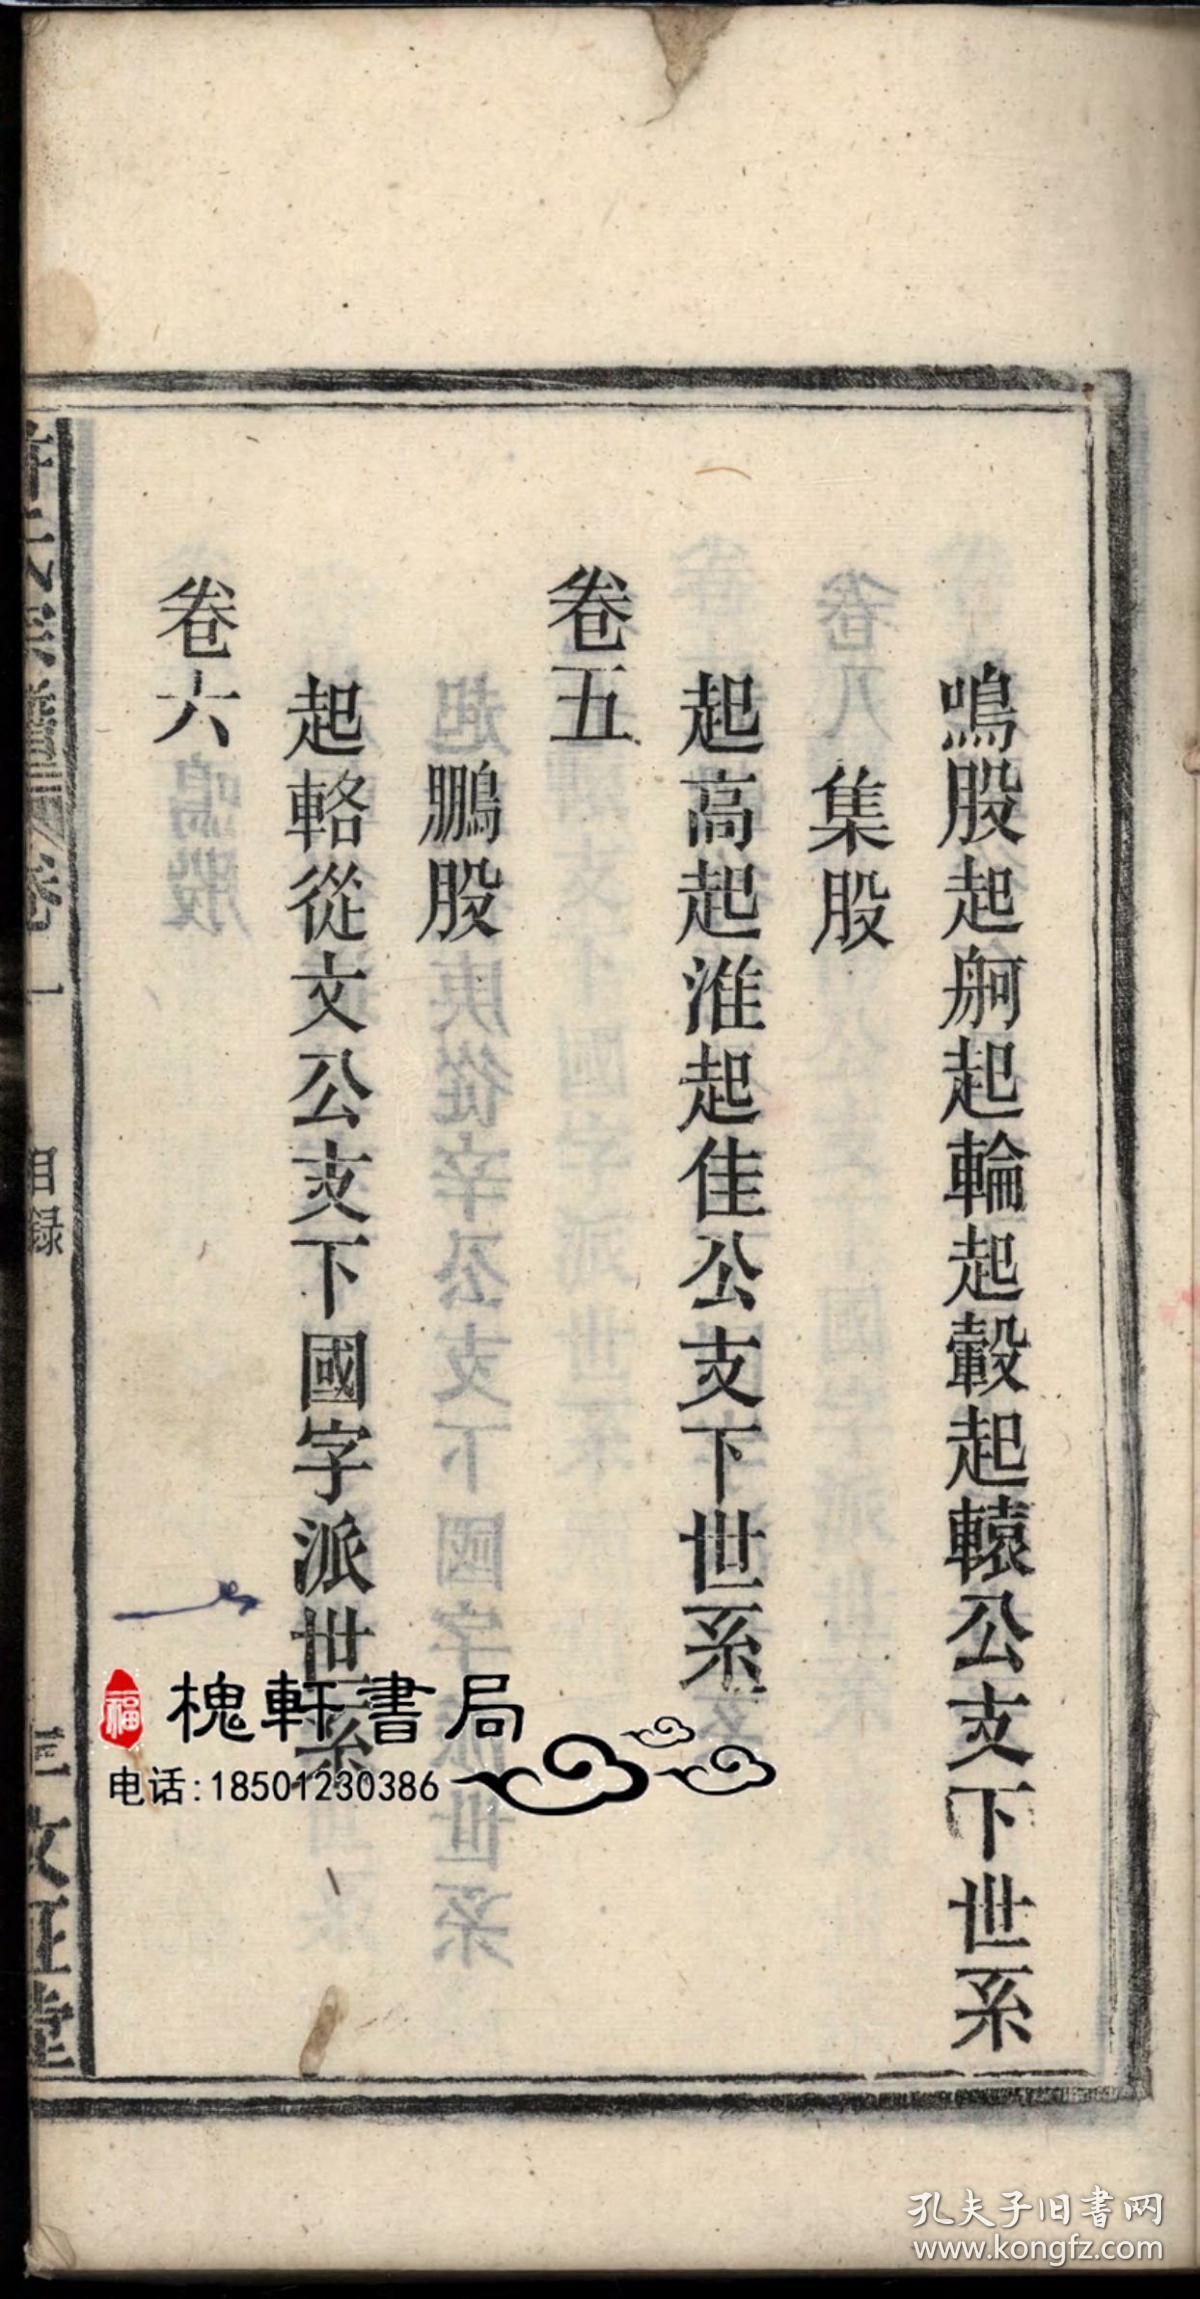 鳴股起舸起輪起轂起轅公支下世系
集股
起高起淮起佳公支下世系
卷五
鵬股
起輅從文公支下國字派世系
卷六
卷一
目録
福
槐軒書局
电话:18501230386
孔夫子旧書网
www.kongfz.com